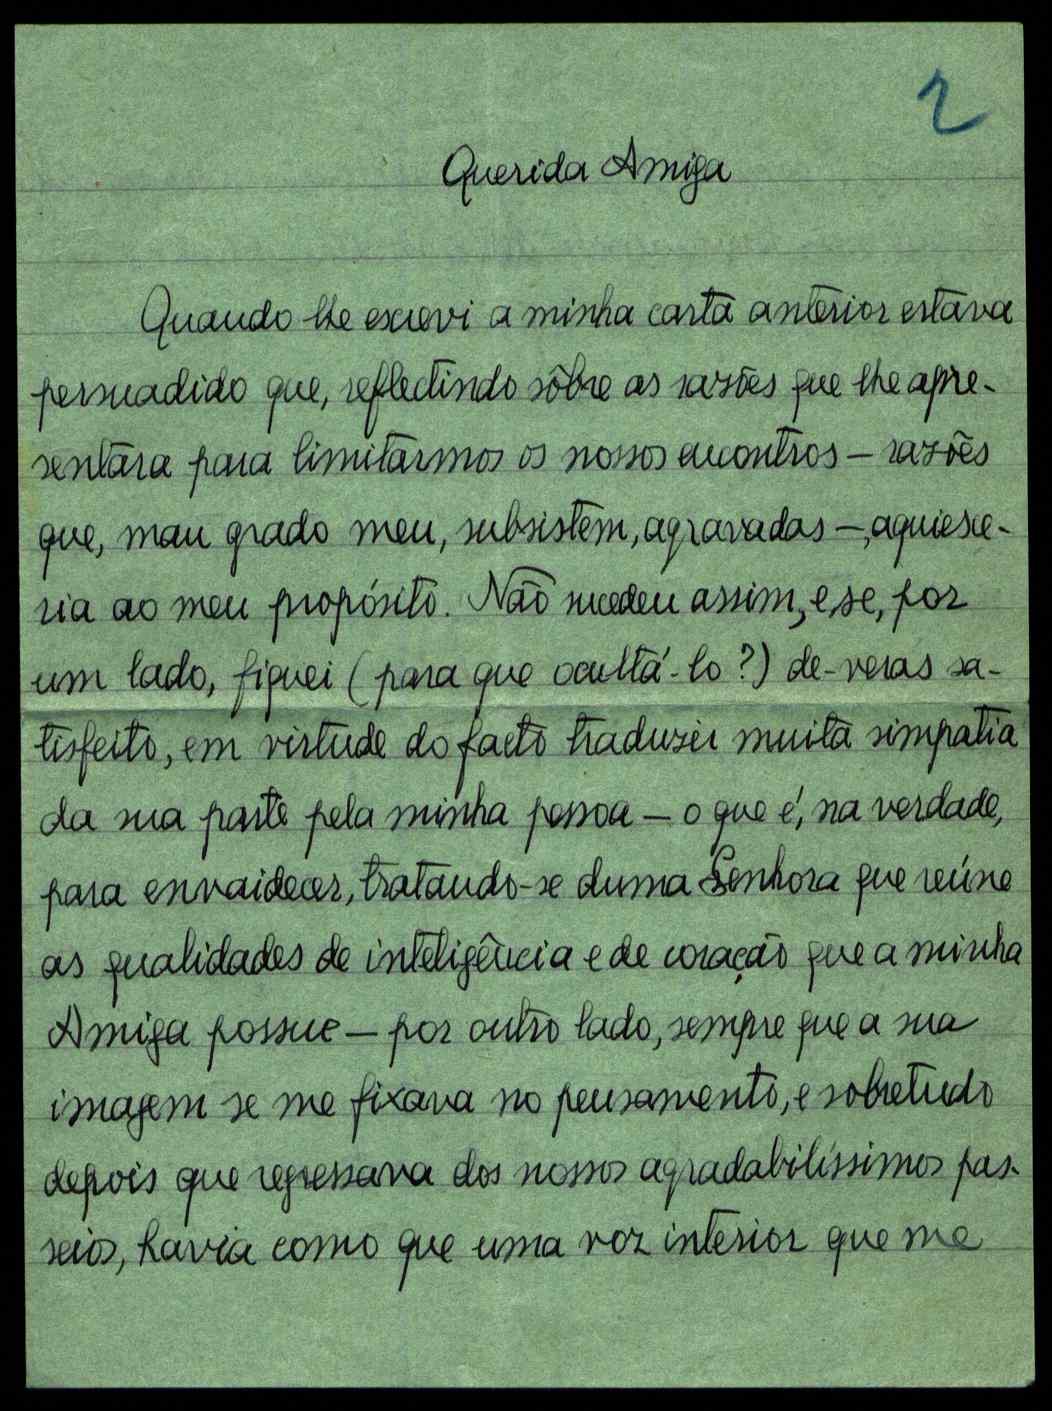 2
Querida Amiga
Quando lhe escrevi a minha carta anterior estava
persuadido que, reflectindo sôbre as razões que lhe apre-
sentára para limitarmos os nossos encontros — razões
que, mau grado meu, subsistem, agravadas —, aquiesce-
ria ao meu propósito. Não sucedeu assim, e, se, por
um lado, fiquei (para que ocultá-lo?) de-veras sa-
tisfeito, em virtude do facto traduzir muita simpatia
da sua parte pela minha pessoa — o que é, na verdade,
para envaidecer, tratando-se duma Senhora que reúne
as qualidades de inteligência e de coração que a minha
Amiga possue — por outro lado, sempre que a sua
imagem se me fixava no pensamento, e sobretudo
depois que regressava dos nossos agradabilíssimos pas-
seios, havia como que uma voz interior que me